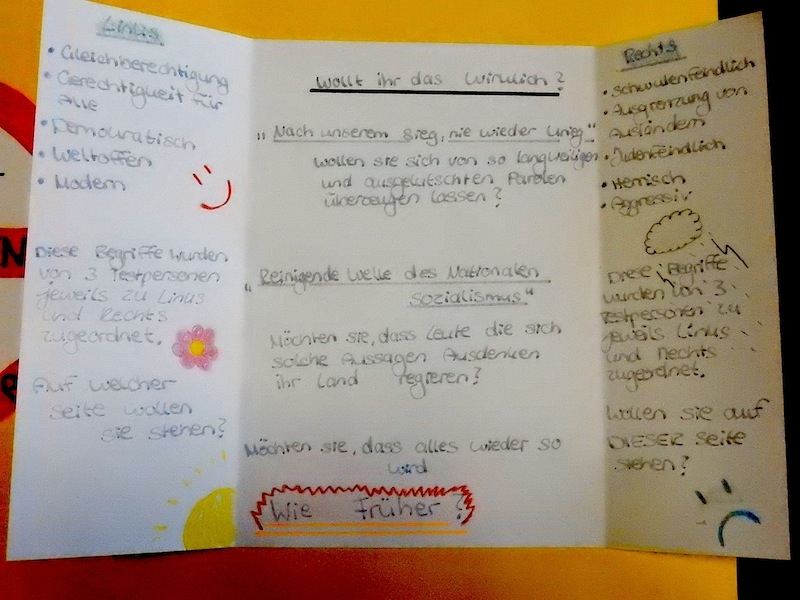 Links
• Gleichberechtigung
• Gerechtigkeit für
alle
• Demokratisch
• Weltoffen
• Modern
Diese Begriffe wurden
von 3 Testpersonen
jeweils zu Links
und Rechts
zugeordnet.
Auf welcher
Seite wollen
sie stehen?
Wollt ihr das Wirklich?
„Nach unserem Sieg, nie wieder Krieg"
wollen sie sich von so langweiligen
und ausgelutschten Parolen
überzeugen lassen?
„Reinigende Welle des Nationalen
sozialismus"
Möchten sie, dass Leute die sich
solche Aussagen Ausdenken
ihr Land regieren?
Möchten sie, dass alles wieder so
wird
Wie Früher?
Rechts
• Schwulenfeindlich
• Ausgrenzung von
Ausländern
• Judenfeindlich
• Herrisch
• Aggressiv
Diese Begriffe
wurden von 3
Testpersonen zu
jeweils Links
und Rechts
zugeordnet.
Wollen sie auf
DIESER Seite
stehen?